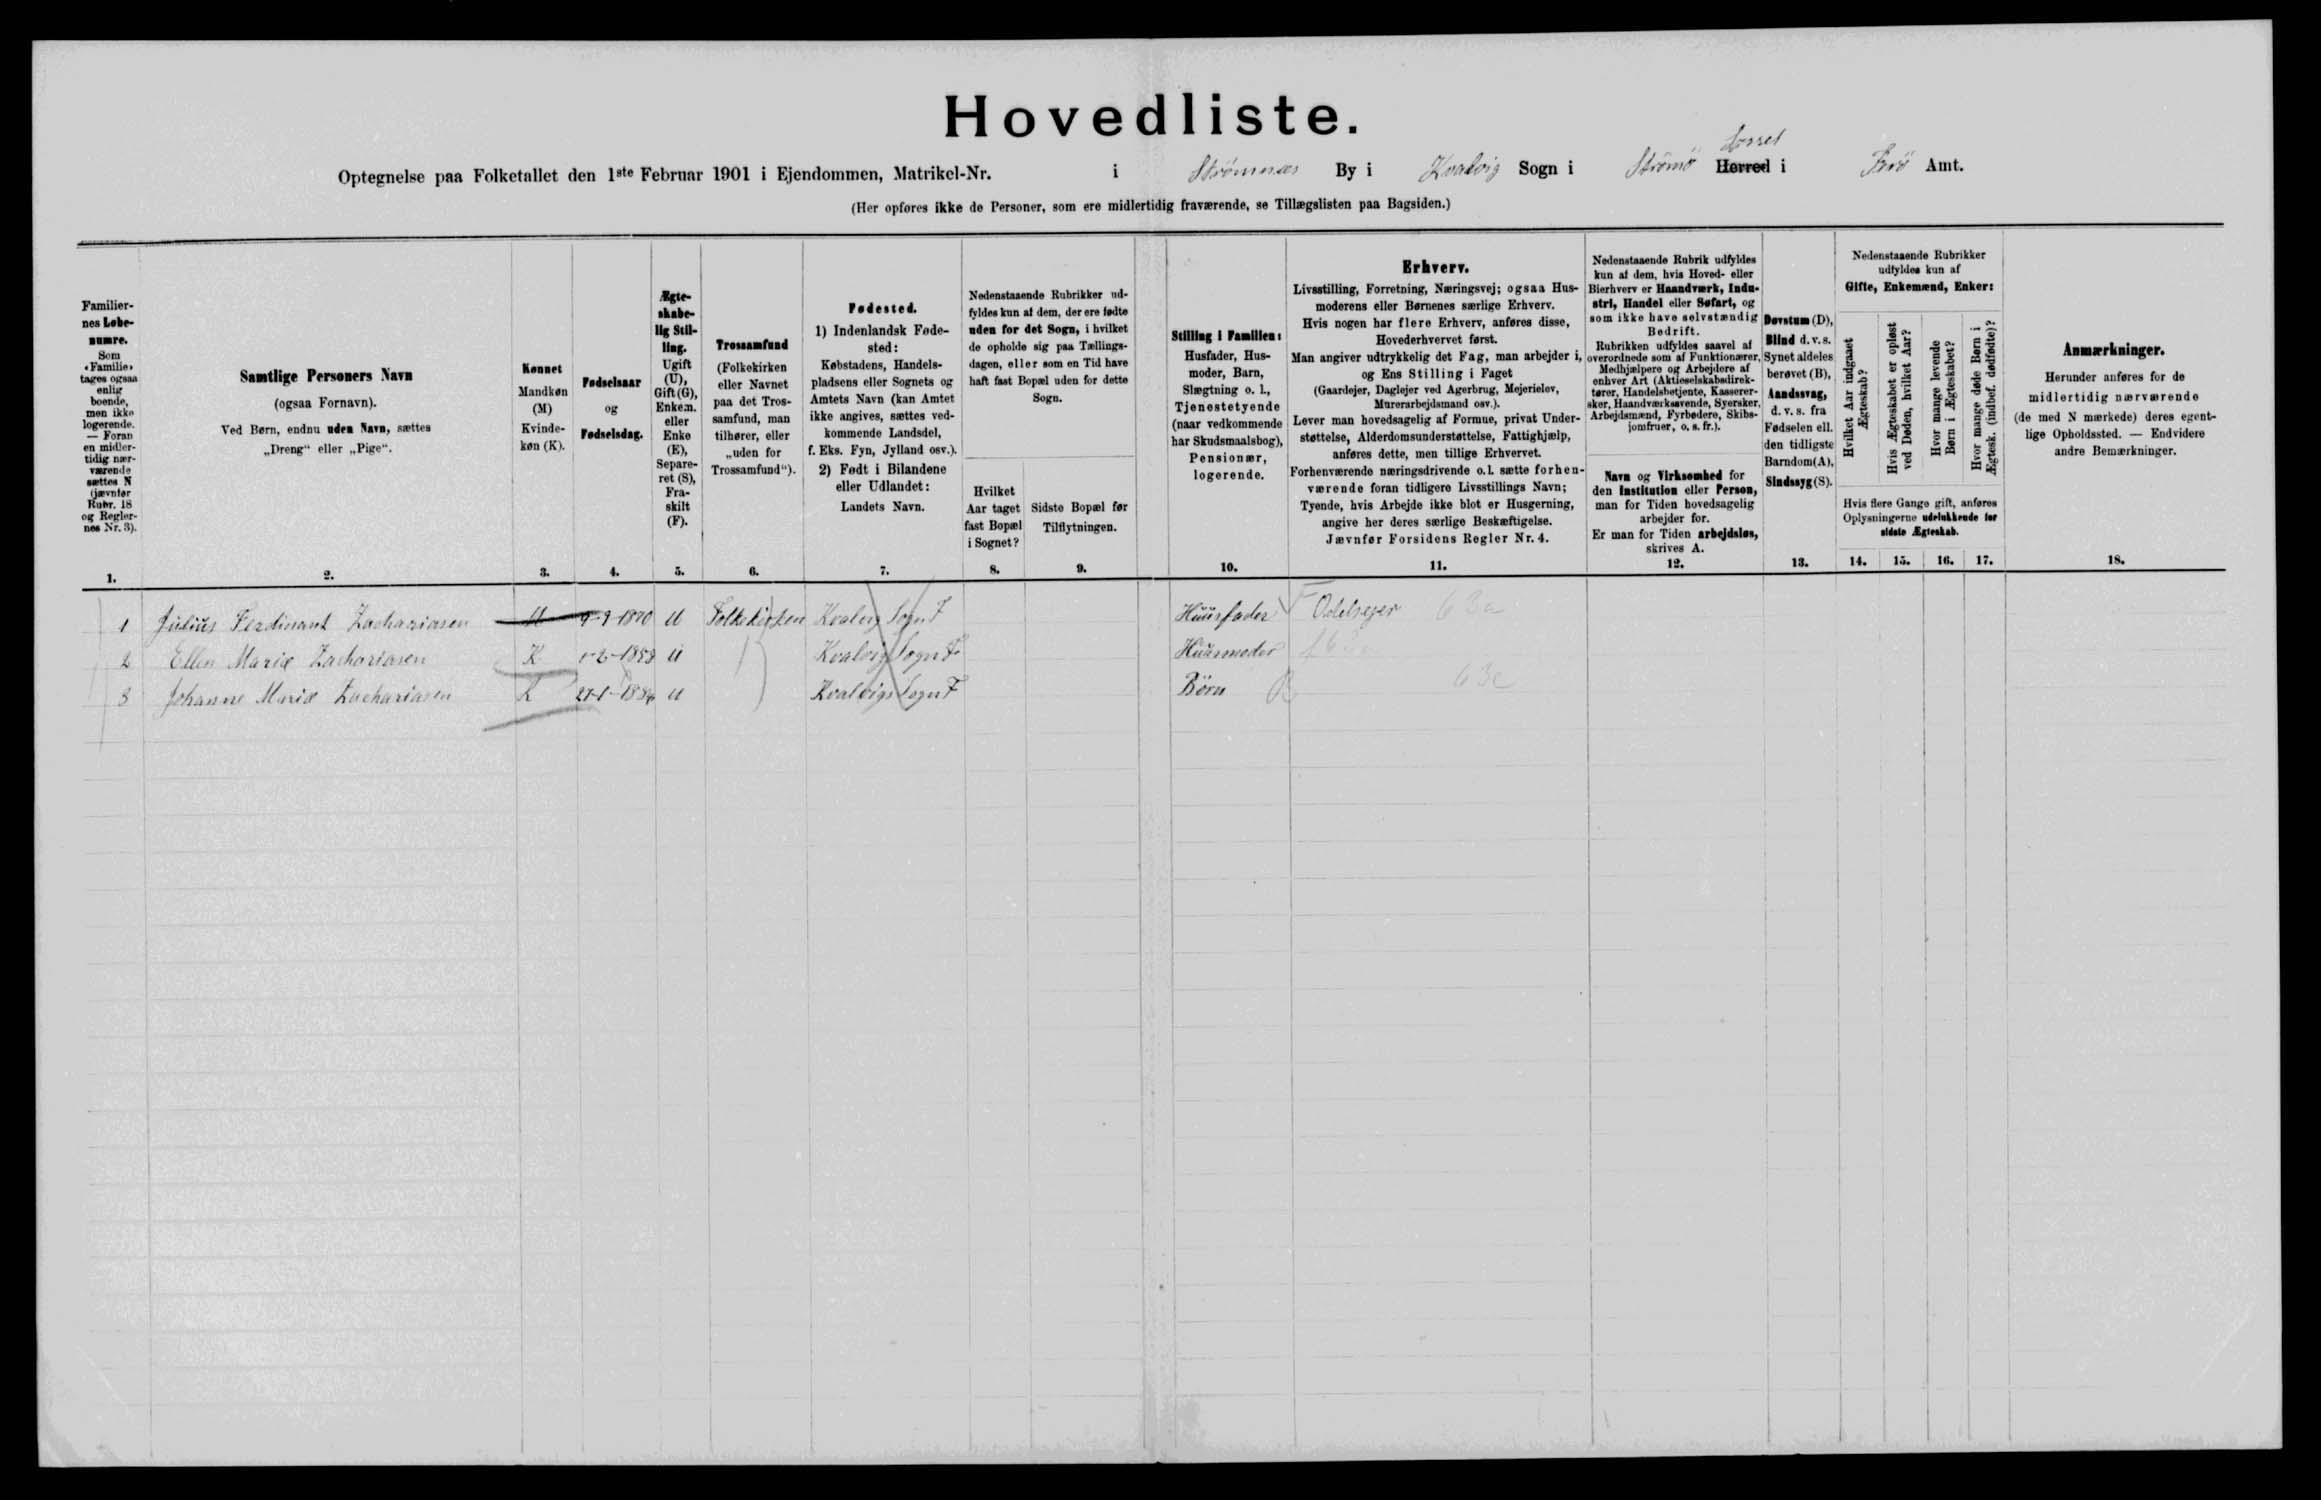 Hovedliste.
Syssel
Optegnelse paa Folketallet den 1ste Februar 1901 i Ejendommen, Matrikel-Nr. i Strömnæs By i Kvalvig Sogn i Strömö Herred i Færö Amt.
(Her opføres ikke de Personer, som ere midlertidig fraværende, se Tillægslisten paa Bagsiden.)
Familier-
nes Løbe-
numre.
Som
«Familie»
tages ogsaa
enlig
boende,
men ikke
logerende.
— Foran
en midler-
tidig nær-
værende
sættes N
(jævnfør
Rubr. 18
og Regler-
nes Nr. 3).
1.
Samtlige Personers Navn
(ogsaa Fornavn).
Ved Børn, endnu uden Navn, sættes
„Dreng“ eller „Pige“.
2.
Kønnet
Mandkøn
(M)
Kvinde-
køn (K).
3.
Fødselsaar
og
Fødselsdag.
4.
Ægte-
skabe-
lig Stil-
ling.
Ugift
(U),
Gift (G),
Enkem.
eller
Enke
(E),
Separe-
ret (S),
Fra-
skilt
(F).
5.
Trossamfund
(Folkekirken
eller Navnet
paa det Tros-
samfund, man
tilhører, eller
„uden for
Trossamfund“).
6.
Fødested.
1) Indenlandsk Føde-
sted:
Købstadens, Handels-
pladsens eller Sognets og
Amtets Navn (kan Amtet
ikke angives, sættes ved-
kommende Landsdel,
f. Eks. Fyn, Jylland osv.).
2) Født i Bilandene
eller Udlandet:
Landets Navn.
7.
Nedenstaaende Rubrikker ud-
fyldes kun af dem, der ere fødte
uden for det Sogn, i hvilket
de opholde sig paa Tællings-
dagen, eller som en Tid have
haft fast Bopæl uden for dette
Sogn.
Hvilket
Aar taget
fast Bopæl
i Sognet?
8.
Sidste Bopæl før
Tilflytningen.
9.
Stilling i Familien:
Husfader, Hus-
moder, Barn,
Slægtning o. l.,
Tjenestetyende
(naar vedkommende
har Skudsmaalsbog),
Pensionær,
logerende.
10.
Erhverv.
Livsstilling, Forretning, Næringsvej; ogsaa Hus-
moderens eller Børnenes særlige Erhverv.
Hvis nogen har flere Erhverv, anføres disse,
Hovederhvervet først.
Man angiver udtrykkelig det Fag, man arbejder i,
og Ens Stilling i Faget
(Gaardejer, Daglejer ved Agerbrug, Mejerielev,
Murerarbejdsmand osv.).
Lever man hovedsagelig af Formue, privat Under-
støttelse, Alderdomsunderstøttelse, Fattighjælp,
anføres dette, men tillige Erhvervet.
Forhenværende næringsdrivende o. l. sætte forhen-
værende foran tidligere Livsstillings Navn;
Tyende, hvis Arbejde ikke blot er Husgerning,
angive her deres særlige Beskæftigelse.
Jævnfør Forsidens Regler Nr. 4.
11.
Nedenstaaende Rubrik udfyldes
kun af dem, hvis Hoved- eller
Bierhverv er Haandværk, Indu-
stri, Handel eller Søfart, og
som ikke have selvstændig
Bedrift.
Rubrikken udfyldes saavel af
overordnede som af Funktionærer,
Medhjælpere og Arbejdere af
enhver Art (Aktieselskabsdirek-
tører, Handelsbetjente, Kasserer-
sker, Haandværkssvende, Syersker,
Arbejdsmænd, Fyrbødere, Skibs-
jomfruer, o. s. fr.).
Navn og Virksomhed for
den Institution eller Person,
man for Tiden hovedsagelig
arbejder for.
Er man for Tiden arbejdsløs,
skrives A.
12.
Døvstum (D),
Blind d. v. s.
Synet aldeles
berøvet (B),
Aandssvag,
d. v. s. fra
Fødselen ell.
den tidligste
Barndom (A),
Sindssyg (S).
13.
Nedenstaaende Rubrikker
udfyldes kun af
Gifte, Enkemænd, Enker:
Hvilket Aar indgaaet
Ægteskab?
Hvis Ægteskabet er opløst
ved Døden, hvilket Aar?
Hvor mange levende
Børn i Ægteskabet?
Hvor mange døde Børn i
Ægtesk. (indbef. dødfødte)?
Hvis flere Gange gift, anføres
Oplysningerne udelukkende for
sidste Ægteskab.
14. 15. 16. 17.
Anmærkninger.
Herunder anføres for de
midlertidig nærværende
(de med N mærkede) deres egent-
lige Opholdssted. — Endvidere
andre Bemærkninger.
18.
1 Julius Ferdinant Zachariasen M 9-9-1870 U Folkekirken Kvalvig Sogn F Huusfader F Odelsejer 63a
2 Ellen Mariæ Zachariasen K U Kvalvig Sogn F Huusmoder
3 Johanne Mariæ Zachariasen K U Kvalvigs Sogn F Börn B 63c